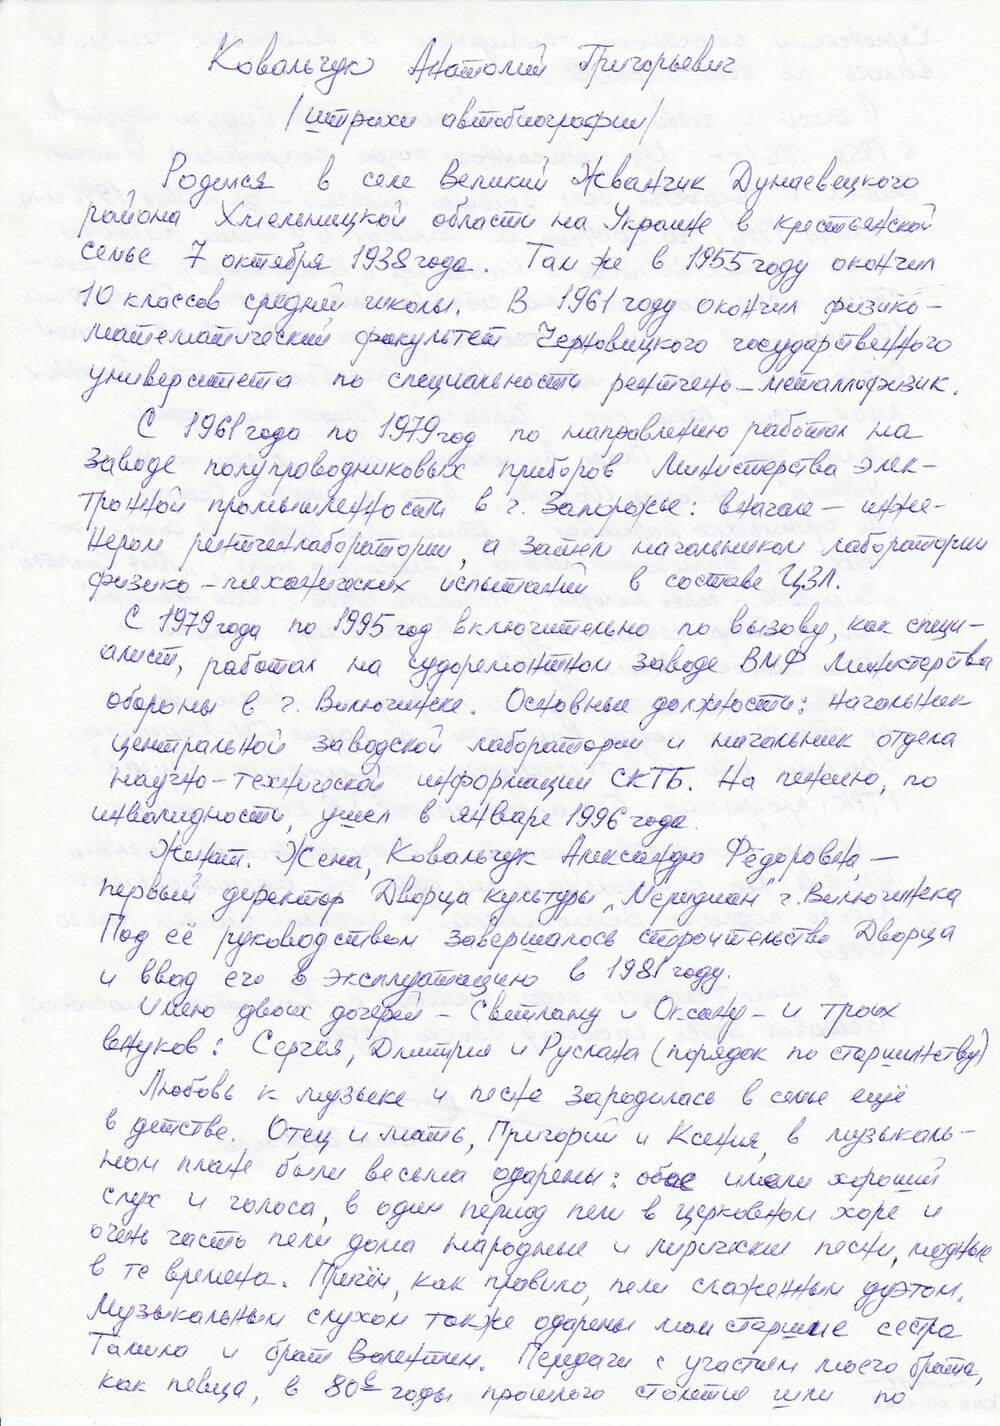 Ковальчук Анатолий Григорьевич
/штрихи автобиографии/
Родился в селе Великий Жванчик Дунаевецкого
района Хмельницкой области на Украине в крестьянской
семье 7 октября 1938 года. Там же в 1955 году окончил
10 классов средней школы. В 1961 году окончил физико-
математический факультет Черновицкого государственного
университета по специальности рентген-металлофизик.
С 1961 года по 1979 год по направлению работал на
заводе полупроводниковых приборов Министерства элек-
тронной промышленности в г. Запорожье: вначале – инже-
нером рентгенлаборатории, а затем начальником лаборатории
физико-механических испытаний в составе ЦЗЛ.
С 1979 года по 1995 год включительно по вызову, как специ-
алист, работал на судоремонтном заводе ВМФ Министерства
обороны в г. Вилючинске. Основные должности: начальник
центральной заводской лаборатории и начальник отдела
научно-технической информации СКТБ. На пенсию, по
инвалидности, ушел в январе 1996 года.
Женат. Жена, Ковальчук Александра Фёдоровна, –
первый директор Дворца культуры „Меридиан" г. Вилючинска
Под её руководством завершалось строительство Дворца
и ввод его в эксплуатацию в 1981 году.
Имею двоих дочерей – Светлану и Оксану – и троих
внуков: Сергея, Дмитрия и Руслана (порядок по старшинству)
Любовь к музыке и песне зародилась в семье ещё
в детстве. Отец и мать, Григорий и Ксения, в музыкаль-
ном плане были весьма одарены: обое имели хороший
слух и голоса, в один период пели в церковном хоре и
очень часто пели дома народные и лирические песни, модные
в те времена. Причём, как правило, пели слаженным дуэтом.
Музыкальным слухом также одарены мои старшие сестра
Тамила и брат Валентин. Передачи с участием моего брата,
как певца, в 80е годы прошлого столетия шли по